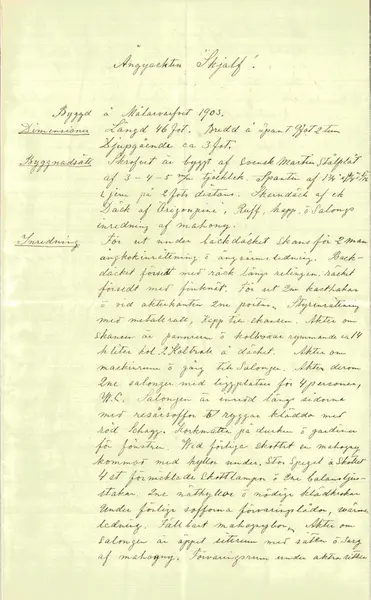 Ångyachten "Skjalf".
Byggd å Mälarvarfvet 1903.
Dimensioner Längd 46 fot. Bredd å spant 9 fot 2 tum
Djupgående ca 3 fot.
Byggnadssätt Skrofvet är byggt af svensk Martin Stålplåt
af 3-4-5 m/m tjocklek. Spanten af
på 2 fots distans. af ek
Däck af Oregonpine, Ruff, kapp, o Salongs
inredning af mahogny.
Inredning För ut under backdäcket Skans för 2 man
ångkokinrättning o ledning. Back-
däcket försedt med räck längs relingen, räcket
försedt med finknät. För ut 2ne
o vid akterkanten 2ne portar. Styrinrättning
med metallratt, Kapp till skansen. Akter om
skansen är pannrum o kolboxar rymmande ca 14
hl eller kol 2 å däcket. Akter om
maskinrum o gång till Salongen. Akter derom
2ne salonger med liggplatser för 4 personer,
W.C. Salongen är inredd långs sidorna
med resårsoffor o ryggar klädda med
röd schagg. Korkmatta på durken o gardiner
för fönstren. Vid förliga skottet en mahogny
kommod med hyllor under, Stor Spegel å Skottet
4 st förnicklade Skottlampor o 2ne balansljus-
stakar. 2ne nathyllor o nödiga klädkrokar
Under förliga sofforna förvaringslådor, värme-
ledning. Fällbart mahognybord. Akter om
Salongen är öppet sittrum med säten o
af mahogny. Förvaringsrum under aktersätten